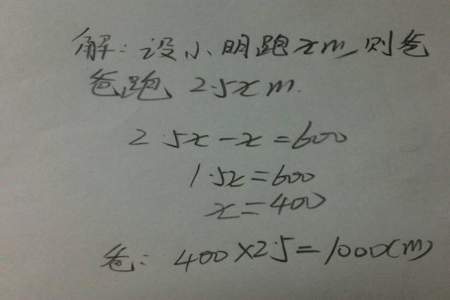 解：设小明跑xm，则爸
爸跑 2.5xm.
2.5x-x=600
1.5x=600
x=400
爸：400×2.5=1000(m)